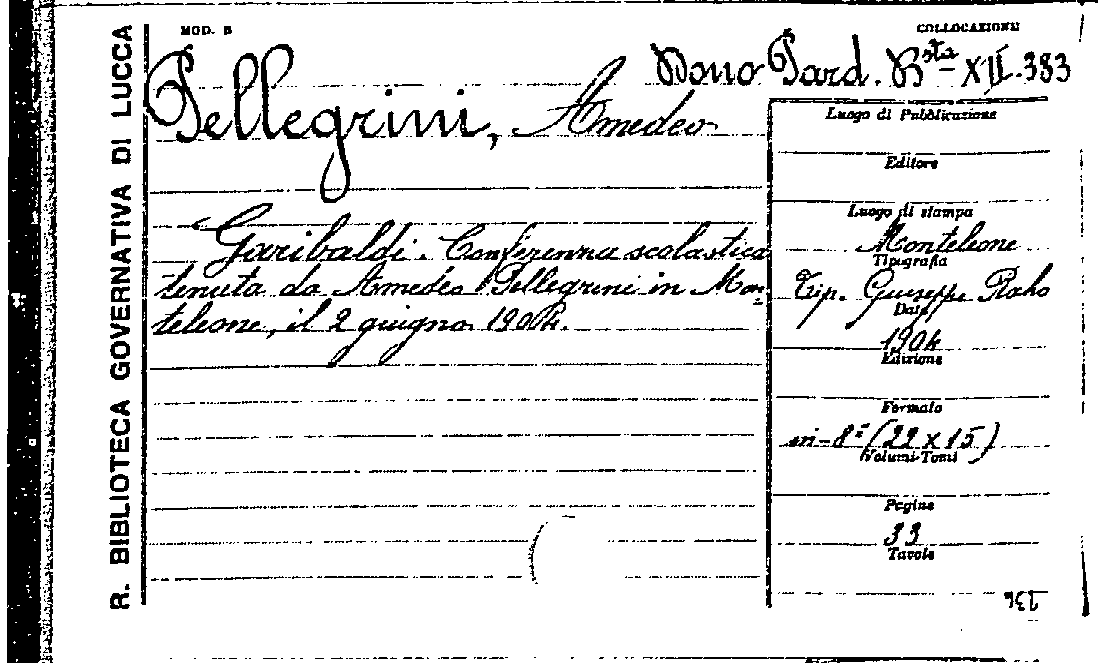 R. BIBLIOTECA GOVERNATIVA DI LUCCA
MOD. B
COLLOCAZIONE
Dono Pard. Bsta XII.383
Pellegrini, Amedeo
Garibaldi. Conferenza scolastica
tenuta da Amedeo Pellegrini in Mon-
teleone, il 2 giugno 1904.
Luogo di Pubblicazione
Editore
Luogo di stampa
Monteleone
Tipografia
Tip. Giuseppe Raho
Data
1904
Edizione
Formato
in-8º (22 x 15)
Volumi-Tomi
Pagine
33
Tavole